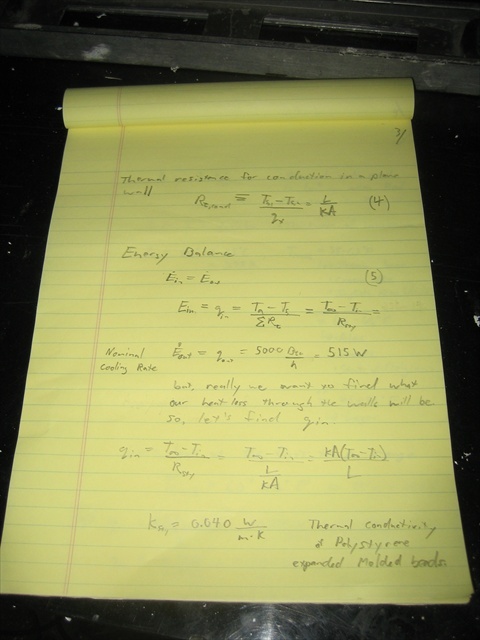 3/
Thermal resistance for conduction in a plane
wall
R_t,cond ≡ (T_s1 - T_s2)/q_x = L/kA (4)
Energy Balance
Ė_in = Ė_out (5)
E_in = q_in = / ΣR_t = (T_∞ - T_in)/ =
Nominal
Cooling Rate
Ė_out = q_out = 5000 /h = 515 W
but, really we want to find what
our heat loss through the walls will be
so, let's find q_in
q_in = (T_∞ - T_in)/ = (T_∞ - T_in)/(L/kA) = kA(T_∞ - T_in)/L
k = 0.040 W/m·K
Thermal conductivity
of Polystyrene
expanded Molded beads